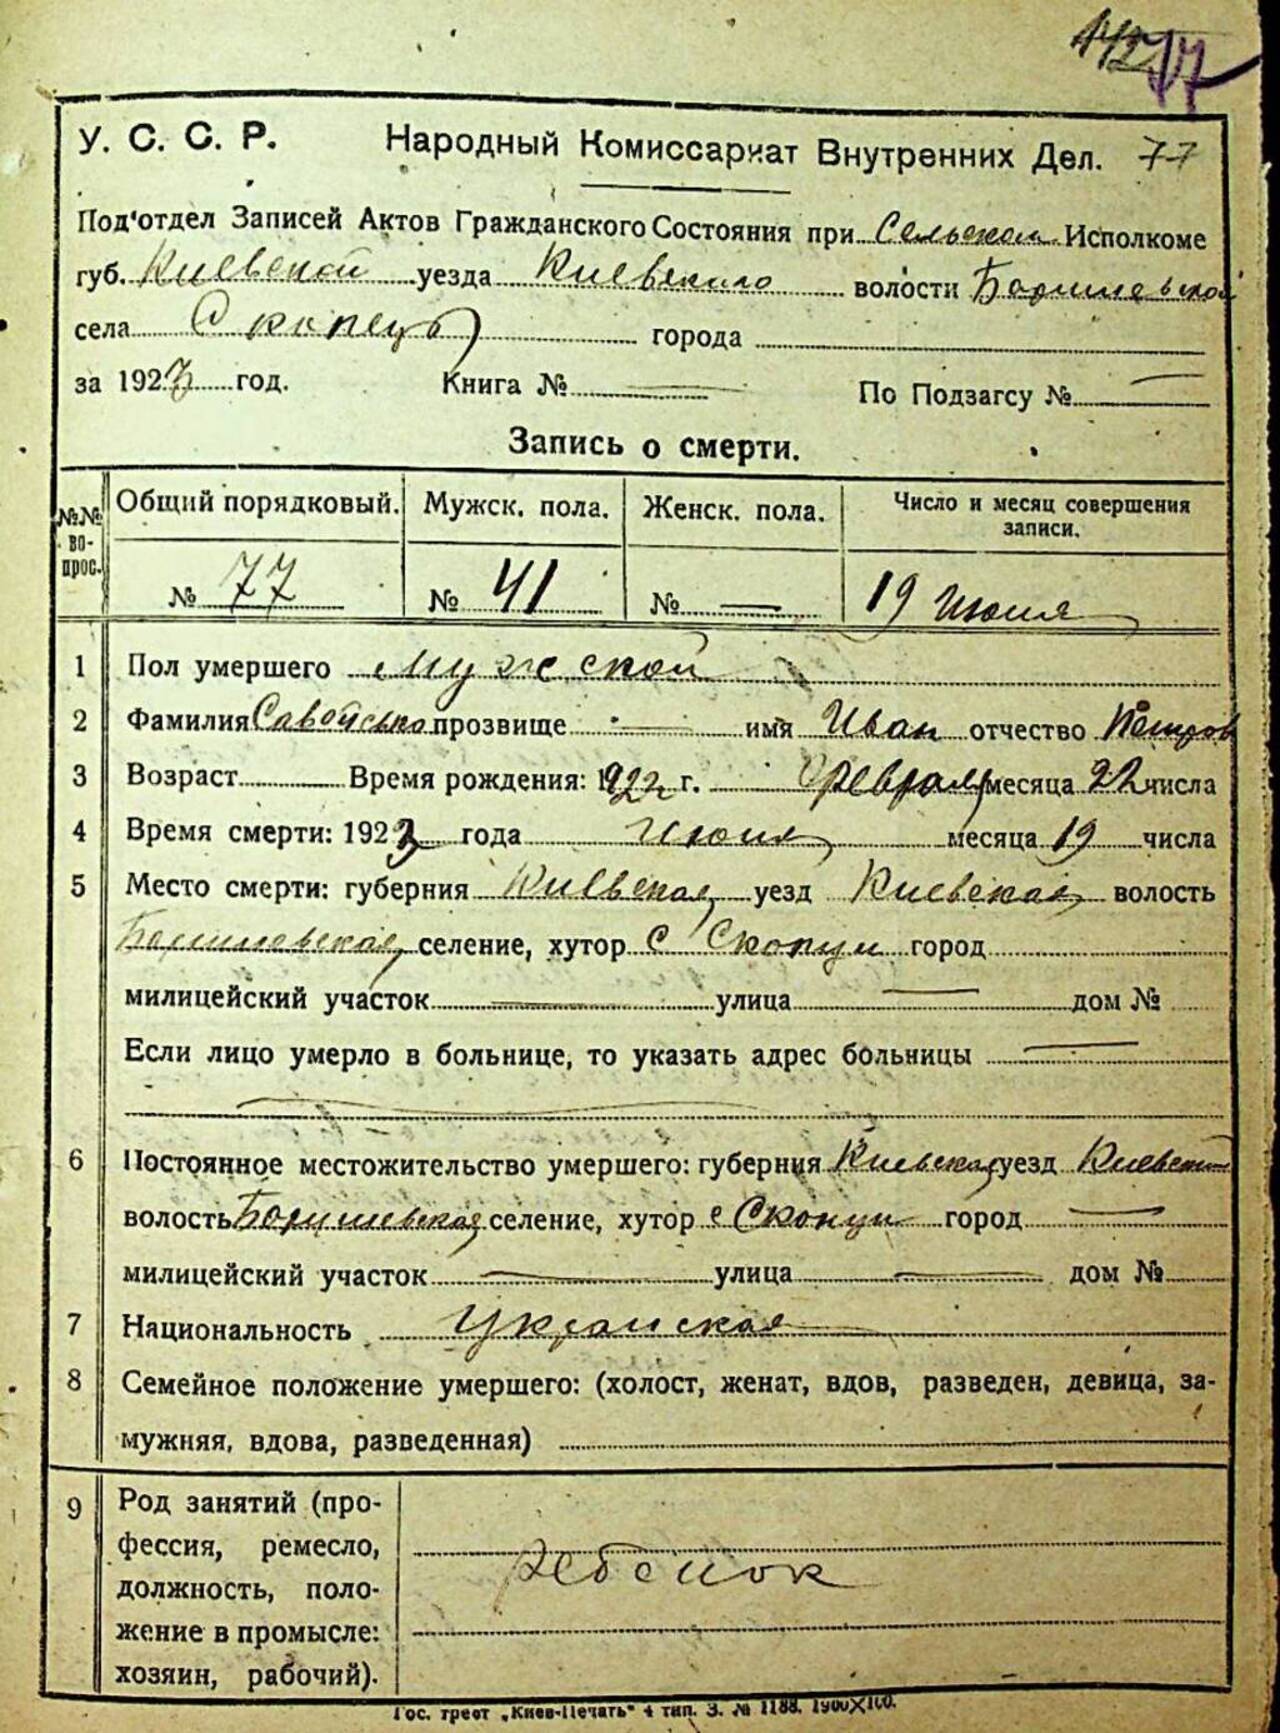 77
У. С. С. Р. Народный Комиссариат Внутренних Дел. 77
Под'отдел Записей Актов Гражданского Состояния при Сельском Исполкоме
губ. Киевской уезда Киевского волости
села города
за 1923 год. Книга № — По Подзагсу № —
Запись о смерти.
№№ вопрос. Общий порядковый. Мужск. пола. Женск. пола. Число и месяц совершения
записи.
№ 77 № 41 № — 19 Июня
1 Пол умершего Мужской
2 Фамилия прозвище — имя Иван отчество Петров
3 Возраст Время рождения: 1922 г. Февраля месяца 22 числа
4 Время смерти: 1923 года Июня месяца 19 числа
5 Место смерти: губерния Киевская уезд Киевская волость
селение, хутор с Скопци город
милицейский участок — улица — дом №
Если лицо умерло в больнице, то указать адрес больницы —
6 Постоянное местожительство умершего: губерния Киевская уезд Киевский
волость селение, хутор с Скопци город —
милицейский участок — улица — дом №
7 Национальность Украинская
8 Семейное положение умершего: (холост, женат, вдов, разведен, девица, за-
мужняя, вдова, разведенная)
9 Род занятий (про-
фессия, ремесло,
должность, поло-
жение в промысле:
хозяин, рабочий).
ребенок
Гос. трест „Киев-Печать" 4 тип. З. № 1188. 1900X100.